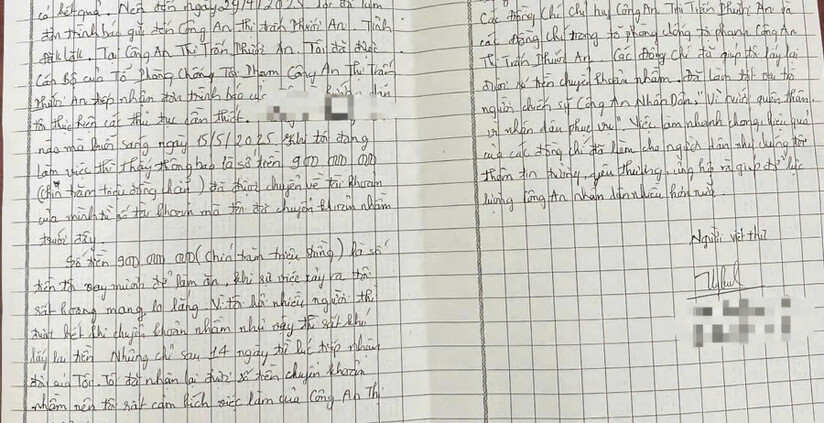 có kết quả. Nên đến ngày 29/4/2025 tôi đã làm
đơn trình báo gửi đến Công An thị trấn Phước An Tỉnh
Đắk Lắk. Tại Công An Thị Trấn Phước An. Tôi đã được
Cán Bộ của Tổ Phòng Chống Tội Phạm Công An Thị Trấn
Phước An tiếp nhận đơn trình báo của
tôi thực hiện các thủ tục cần thiết.
nào mà buổi sáng ngày 15/5/2025 khi tôi đang
làm việc thì thấy thông báo là số tiền 900 000 000
(chín trăm triệu đồng chẵn) đã được chuyển về tài khoản
của mình từ số tài khoản mà tôi đã chuyển khoản nhầm
trước đây.
Số tiền 900.000.000 (Chín trăm triệu đồng) là số
tiền tôi vay mình để làm ăn, khi sự việc xảy ra tôi
rất hoang mang lo lắng. Vì tôi hỏi nhiều người thì
được biết khi chuyển khoản nhầm như vậy thì rất khó
lấy lại tiền. Nhưng chỉ sau 14 ngày từ lúc tiếp nhận
đơn của Tôi. Tôi đã nhận lại được số tiền chuyển khoản
nhầm nên tôi rất cảm kích việc làm của Công An Thị
Các đồng chí chỉ huy Công An Thị Trấn Phước An và
các đồng chí trong tổ phòng chống tội phạm Công An
Thị Trấn Phước An. Các đồng chí đã giúp tôi lấy lại
được số tiền chuyển khoản nhầm. Đã làm tốt vai trò
người chiến sỹ Công An Nhân Dân, "Vì nước quên thân,
vì nhân dân phục vụ". Việc làm nhanh chóng, hiệu quả
của các đồng chí đã làm cho người dân như chúng tôi
thêm tin tưởng, yêu thương, ủng hộ và giúp đỡ lực
lượng Công An nhân dân nhiều hơn nữa.
Người viết thư